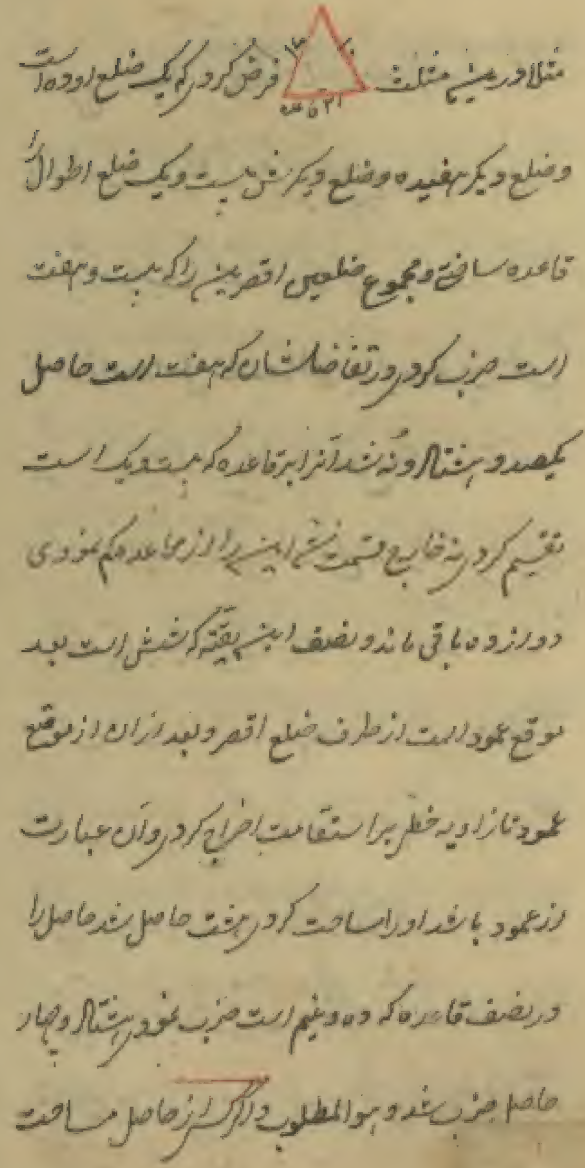 مثلا درین مثلث ۱۰ ۱۷ قاعده ۲۱ فرض کردی که یک ضلع او ده است
و ضلع دیگر هفده و ضلع دیگرش بیست و یک ضلع اطول را
قاعده ساختی و مجموع ضلعین اقصرین را که بیست و هفت
است ضرب کردی در تفاضلشان که هفت است حاصل
یکصد و هشتاد و نه شد آنرا بر قاعده که بیست و یک است
تقسیم کردی نه خارج قسمت شد این را از قاعده کم نمودی
دوازده باقی ماند و نصف این بقیه که شش است بعد
موقع عمود است از طرف ضلع اقصر و بعد ازان از موقع
عمود تا زاویه خطی بر استقامت اخراج کردی و آن عبارت
از عمود باشد او را مساحت کردی هشت حاصل شد حاصل را
در نصف قاعده که ده و نیم است ضرب نمودی هشتاد و چهار
حاصل ضرب شد و هو المطلوب و اگر از حاصل مساحت